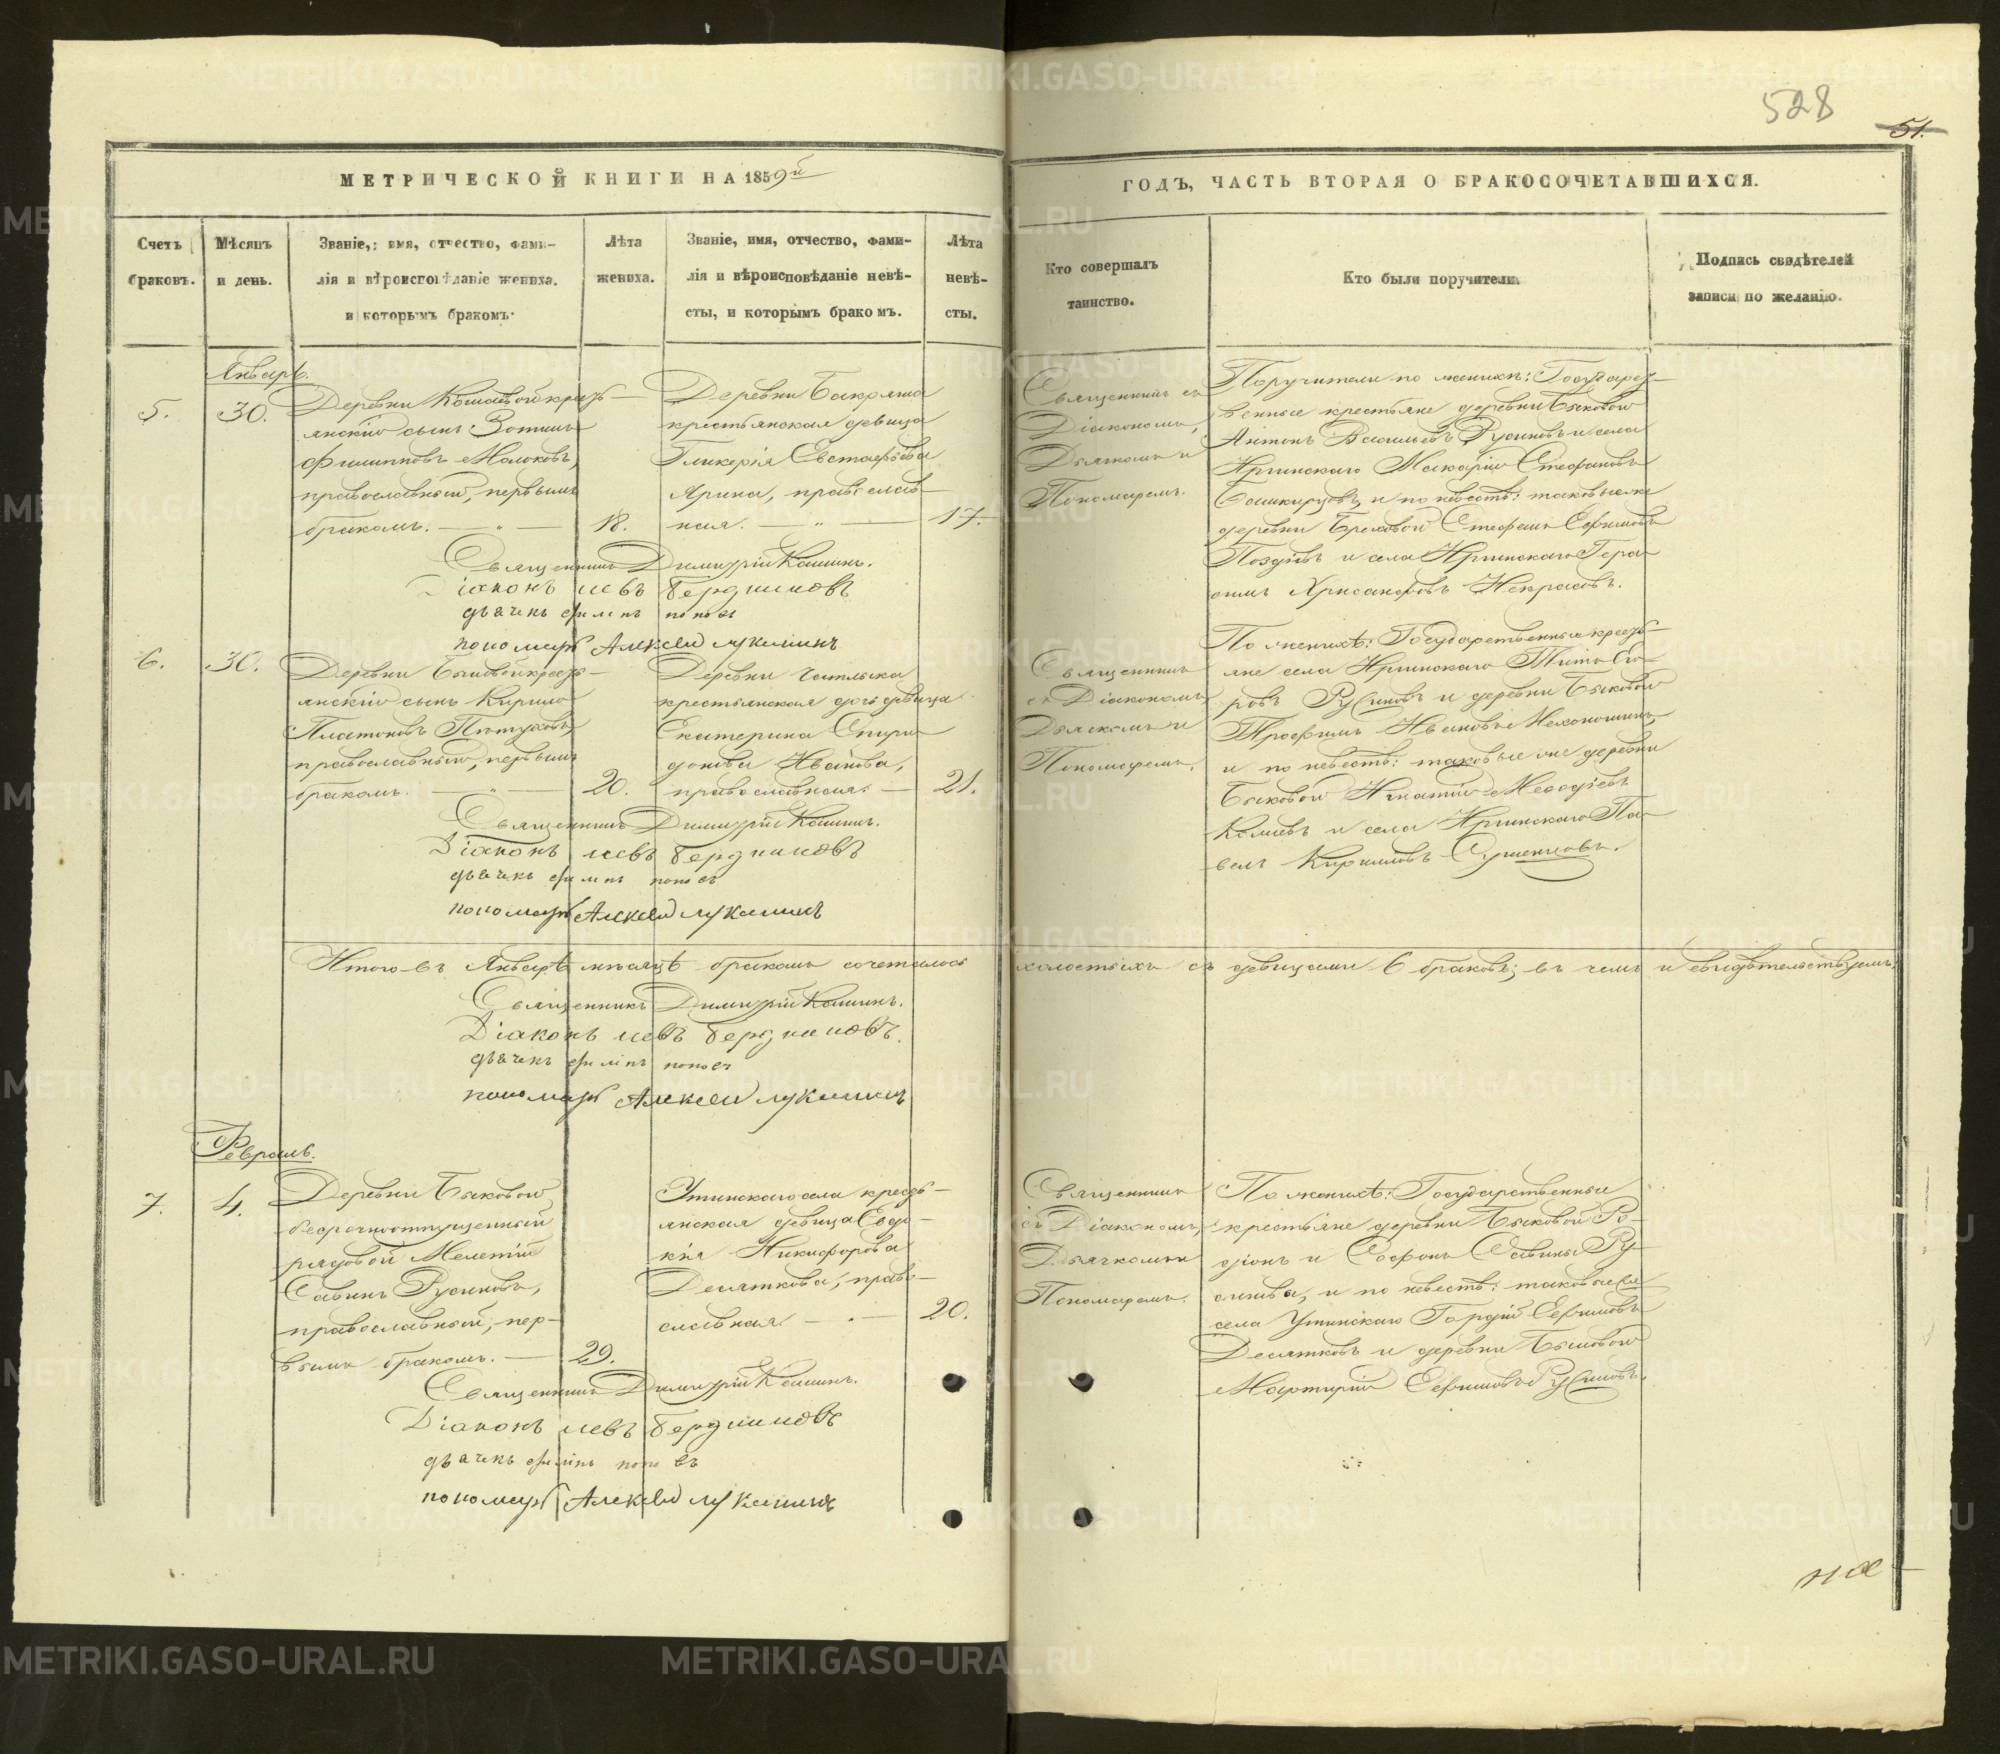 528
51.
МЕТРИЧЕСКОЙ КНИГИ НА 1859й
ГОДЪ, ЧАСТЬ ВТОРАЯ О БРАКОСОЧЕТАВШИХСЯ.
Счетъ браковъ.
Мѣсяцъ и день.
Званіе, имя, отчество, фами-
лія и вѣроисповѣданіе жениха.
и которымъ бракомъ.
Лѣта
жениха.
Званіе, имя, отчество, фами-
лія и вѣроисповѣданіе невѣ-
сты, и которымъ бракомъ.
Лѣта
невѣ-
сты.
Кто совершалъ
таинство.
Кто были поручители.
Подпись свидѣтелей
записи по желанію.
Январь.
5.
30.
Деревни крестъ-
янскій сынъ Зотикъ
Филипповъ Молоковъ,
православный, первымъ
бракомъ.
18.
Деревни Бакряша
крестьянская девица
Гликерія Евстафьева
Ярина, православ-
ная.
17.
Священникъ съ
Діакономъ,
Дьячкомъ и
Пономаремъ.
Поручители по женихѣ: Государст-
венные крестьяне деревни Быковой
Антонъ Васильевъ Русиновъ и села
Иргинскаго Макарій Стефановъ
Башкирцовъ, и по невѣстѣ: таковые же
деревни Стефанъ Ефимовъ
Поздѣевъ и села Иргинскаго Гера-
симъ Хрисанфовъ Некрасовъ.
Священникъ Димитрій Кашинъ.
Діаконъ левъ бердниковъ
дьячекъ филипъ поповъ
пономарь Алексей лукашинъ
6.
30.
Деревни Быковой крестъ-
янскій сынъ Кирило
Платоновъ Пѣтуховъ,
православный, первымъ
бракомъ.
20.
Деревни Чатлыка
крестьянская дочь девица
Екатерина Спири-
донова Иванова,
православная.
21.
Священникъ
съ Діакономъ
Дьячкомъ и
Пономаремъ.
По женихѣ: Государственные кресть-
яне села Иргинскаго Титъ Его-
ровъ Русиновъ и деревни Быковой
Трофимъ Ивановъ Нехоношинъ,
и по невѣстѣ: таковые же деревни
Быковой Игнатій Меѳодіевъ
и села Иргинскаго Па-
велъ Кириловъ
Священникъ Димитрій Кашинъ.
Діаконъ левъ бердниковъ
дьячекъ филипъ поповъ
пономарь Алексей лукашинъ
Итого въ Январѣ мѣсяцѣ бракомъ сочеталось холостыхъ съ девицами 6 браковъ; въ чемъ и свидѣтельствуемъ:
Священникъ Димитрій Кашинъ.
Діаконъ левъ бердниковъ.
дьячекъ филипъ поповъ
пономарь Алексей лукашинъ
Февраль.
7.
4.
Деревни Быковой
безсрочноотпущенный
рядовой Мелетій
Савинъ Русиновъ,
православный, пер-
вымъ бракомъ.
29.
Утинскаго села кресть-
янская девица Евдо-
кія Никифорова
Десяткова, право-
славная
20.
Священникъ
съ Діакономъ,
Дьячкомъ и
Пономаремъ.
По женихѣ: Государственные
крестьяне деревни Быковой Ро-
діонъ и Софонъ Савины Ру-
синовы, и по невѣстѣ: таковые же
села Утинскаго Гордій Ефимовъ
Десятковъ и деревни Быковой
Мартирій Ефимовъ Русиновъ.
Священникъ Димитрій Кашинъ.
Діаконъ левъ бердниковъ
дьячекъ филипъ поповъ
пономарь Алексей лукашинъ
METRIKI.GASO-URAL.RU